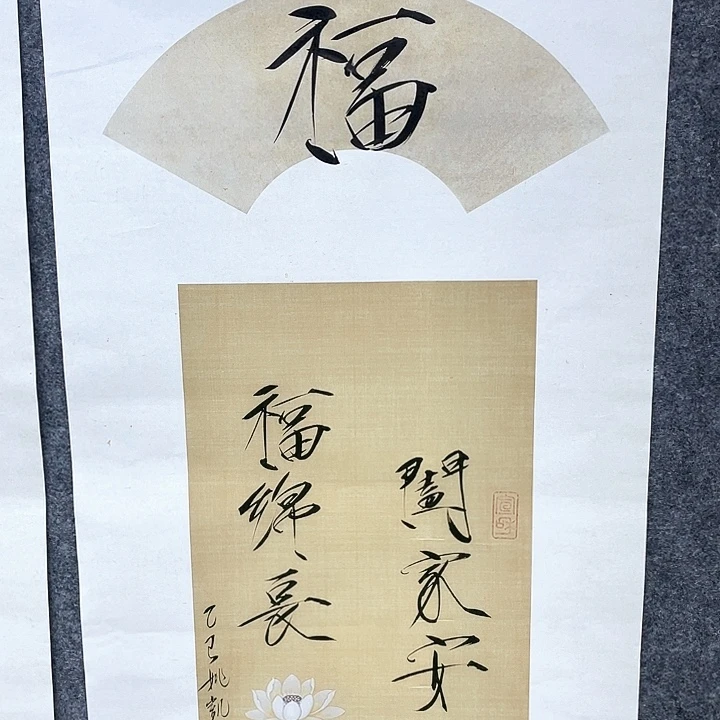 福
闔家安
福綿長
乙巳姚凱